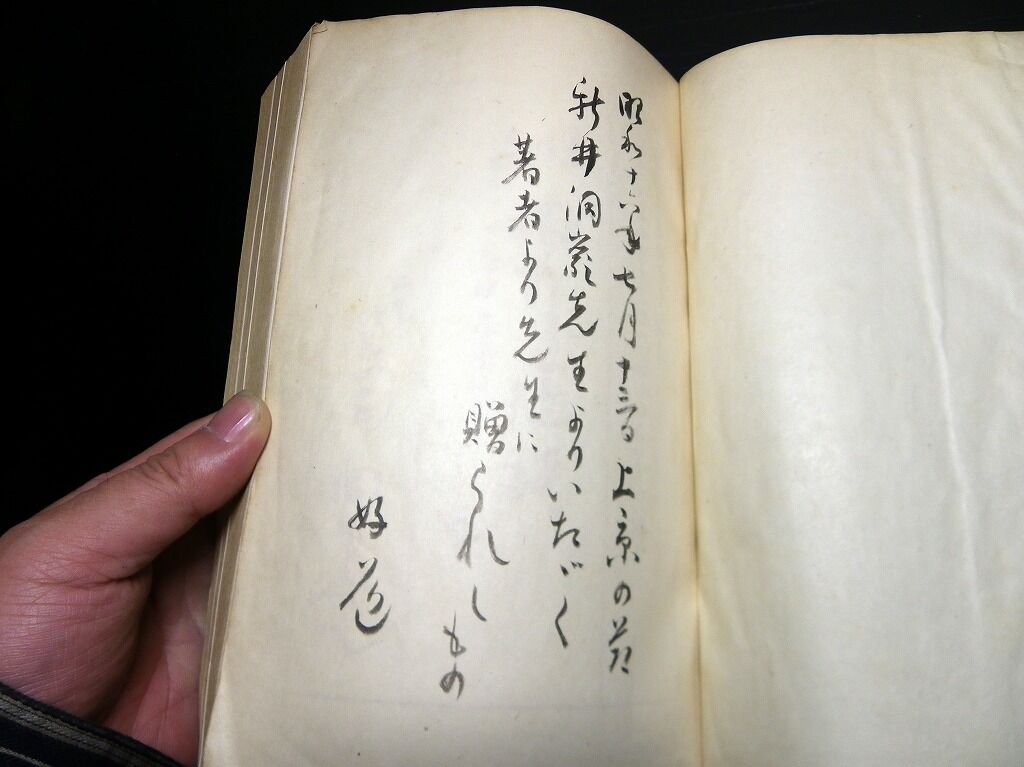 昭和十六年七月十三日上京の節
新井洞巌先生よりいたゞく
著者より先生に
贈られしもの
好道